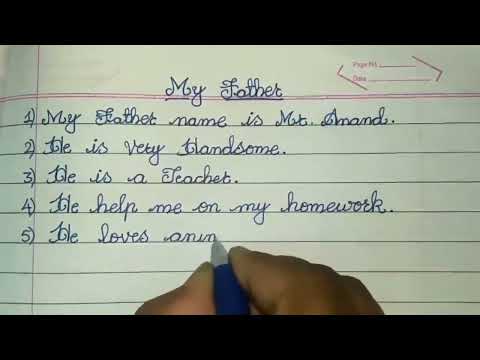 Page No.
Date
My Father
1) My Father name is Mr. Anand.
2) He is Very Handsome.
3) He is a Teacher.
4) He help me on my homework.
5) He loves anim